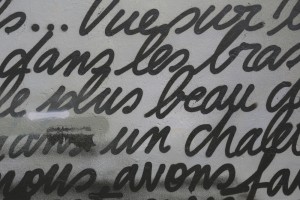 s... Vue sur l
dans les bras
le plus beau q
dans un chalet
nous avons fai